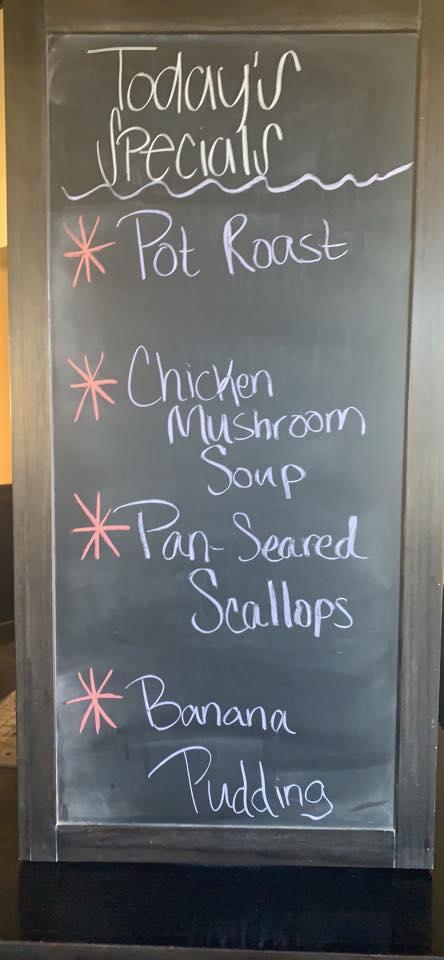 Today's
Specials
* Pot Roast
* Chicken
Mushroom
Soup
* Pan-Seared
Scallops
* Banana
Pudding